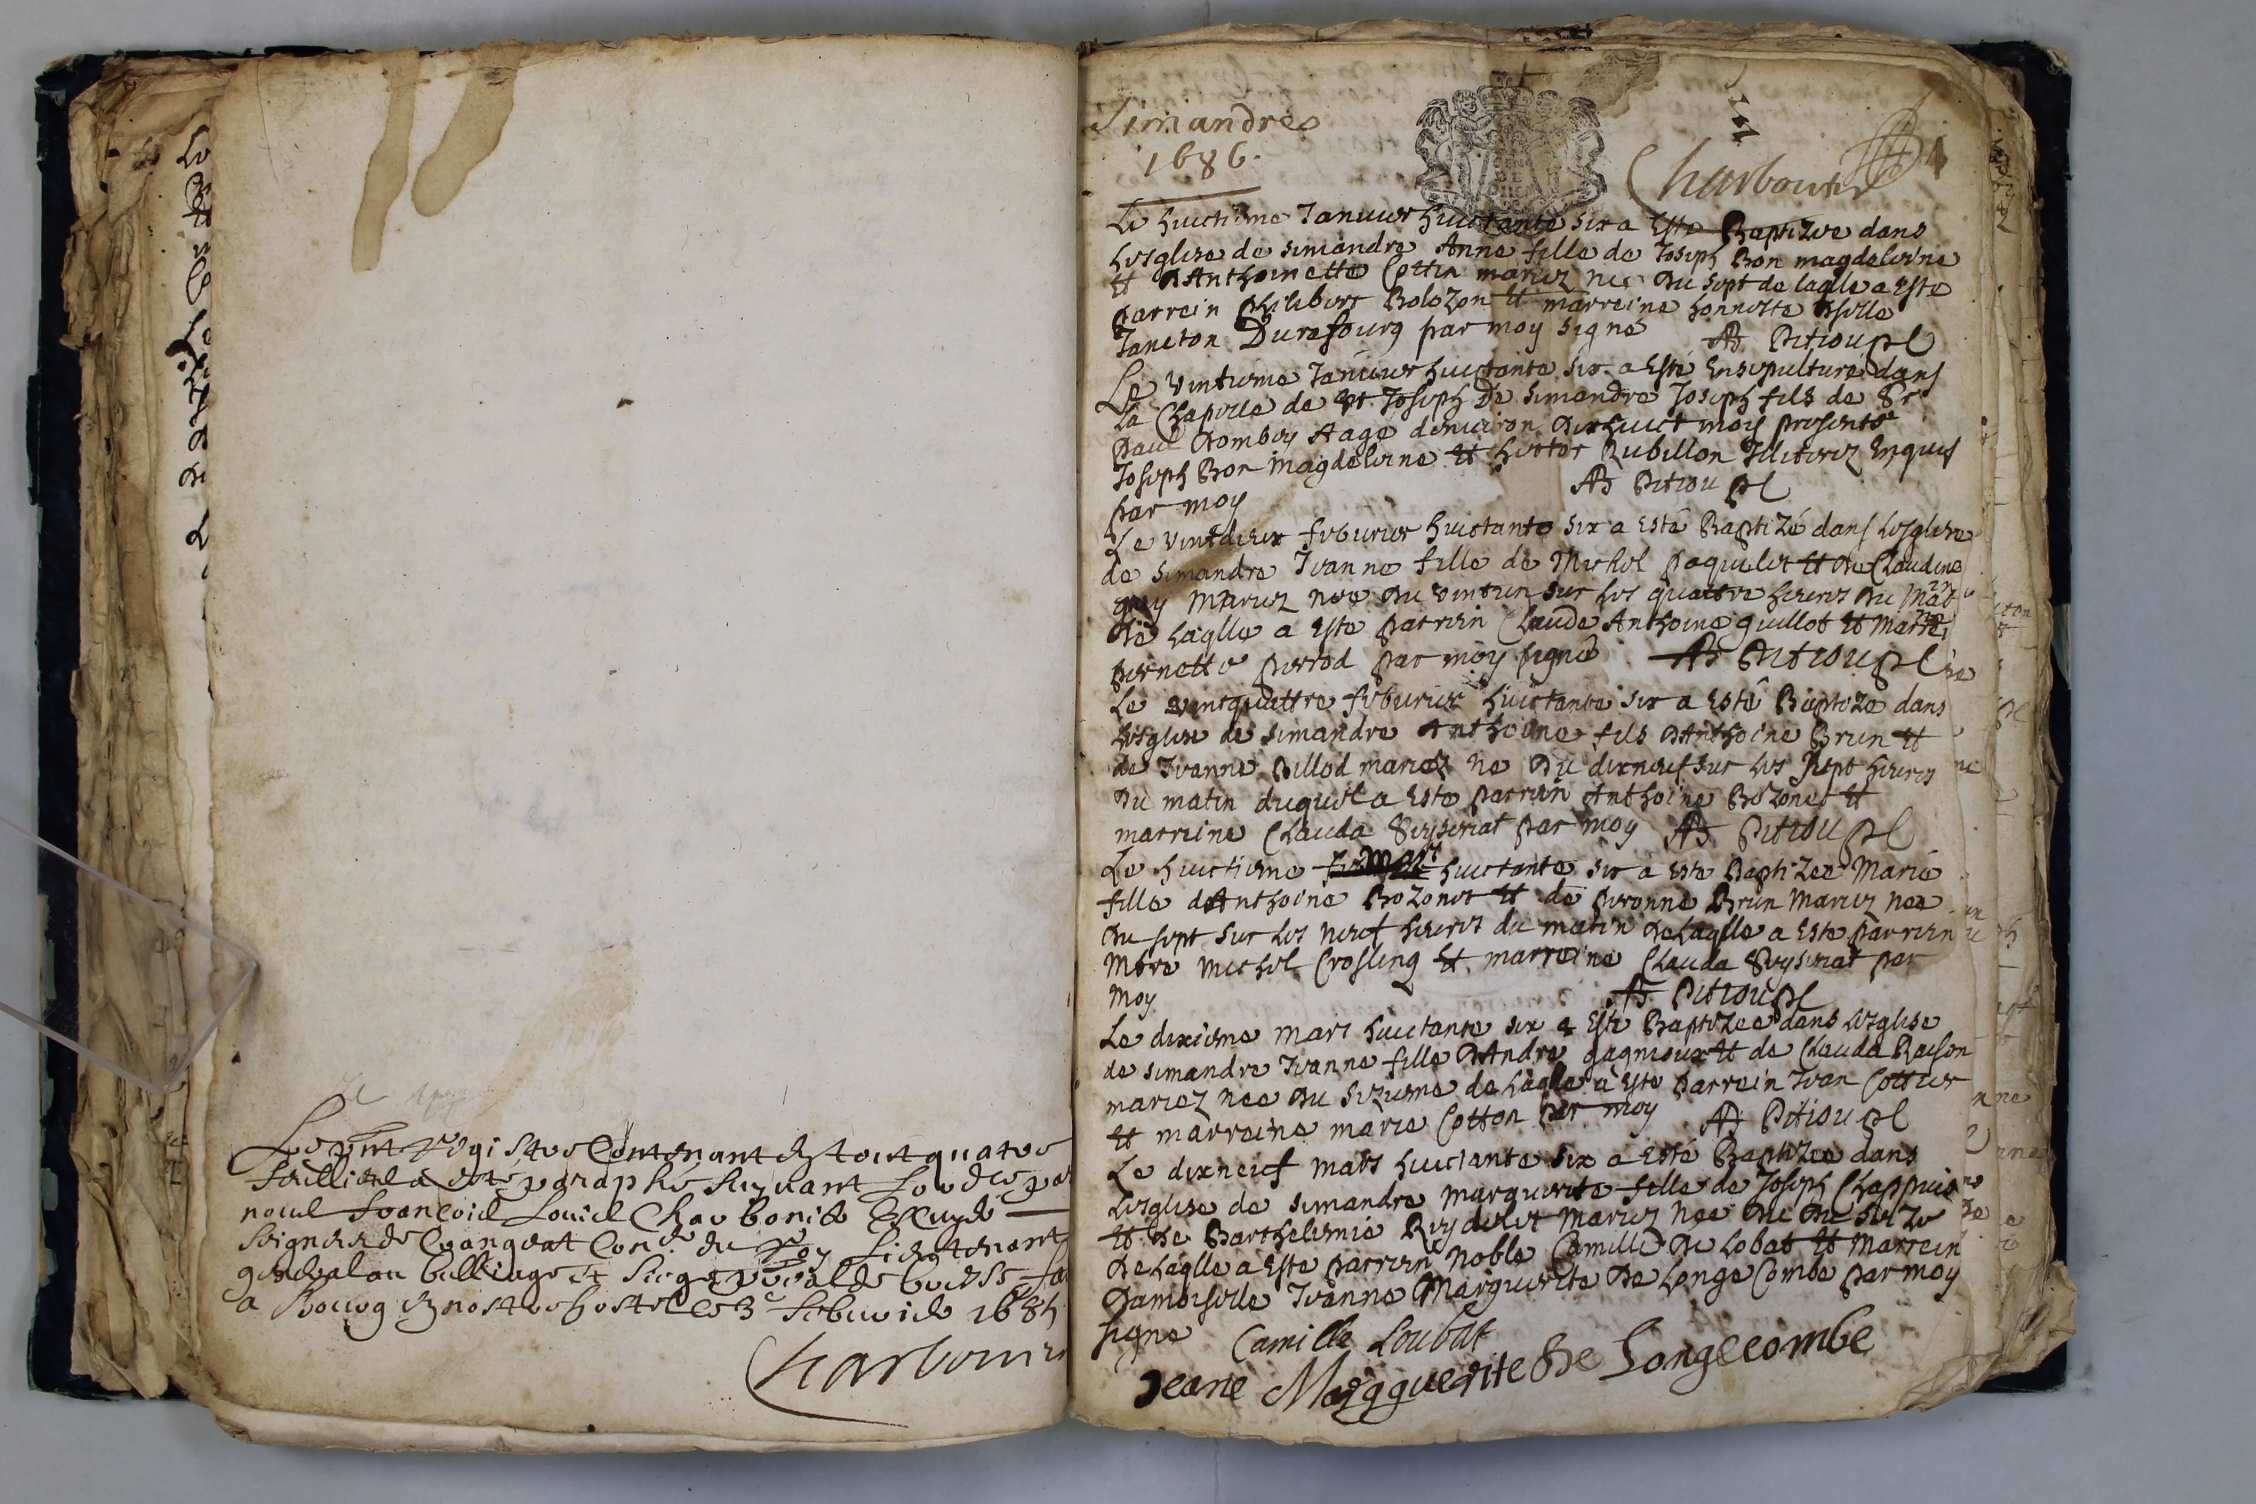 Le pnt Registre Contenant en tout quatre
feuillietz a esté paraphé suyvant Lordre par
nous Francois Louis Charbonier Escuyer
Seigneur de Crangeat Con.er du Roy Lieutenant
general au balliage et siege pnal de bresse fait
a Bourg en nostre hostel ce 3e febvrier 1685
Charbonier
Simandre
1686.
Charbonier
Le huictieme Januier huictante six a Este Baptizee dans
Lesglise de simandre Anne fille de Joseph Bon magdeleine
Et D'Anthoinette Cottin mariez nee Du sept de laqlle a Este
parrein philibert Bolozon Et marreine honneste fille
Janeton Durafourg par moy signe AB Pitiou
Le vintieme Januier huictante six a Esté Ensepulturé dans
La Chapelle de St Joseph De simandre Joseph fils de Sr
paul Dombey Aage denuiron Dixhuict mois presents
Joseph Bon magdeleine Et hector Rubillon Illiterez Enquis
par moy AB Pitiou
Le vintdeux feburier huictante six a Esté Baptizé dans Lesglise
de simandre Jeanne fille de Michel paquelet Et De Claudine
guy Mariez nee Du vintun sur les quattre heures Du Matin
De laqlle a Este parrein Claude Anthoine guillot Et Marreine
pernette perrod par moy signé AB Pitiou
Le vintquattre feburier huictante six a Esté Baptizé dans
Lesglise de simandre Anthoine fils D'Anthoine Brun Et
de Jeanne pillod mariez ne Du dixneuf sur les sept heures
Du matin duquel a Este parrein Anthoine Bozonet Et
marreine Clauda Seyseriat par moy AB Pitiou
Le huictieme mars huictante six a Este Baptizee Marie
fille d'Anthoine Bozonet Et de peronne Brun Mariez nee
Du sept sur les neuf heures du matin De Laqlle a Este parrein
Mtre Michel Crosling Et marreine Clauda Seyseriat par
Moy AB Pitiou
Le dixieme mars huictante six a Este Baptizee dans Lesglise
de simandre Jeanne fille D'Andre gagnieux Et de Clauda Raison
mariez nee Du sizieme de Laqlle a Este parrein Jean Cottier
Et marreine marie Cotton par moy AB Pitiou
Le dixneuf mars huictante six a Esté Baptizee dans
Lesglise de simandre Marguerite fille de Joseph Chappuis
Et De Barthelemie Reydelet Mariez nee De Du seize
De Laqlle a Este parrein Noble Camille De Lobat Et Marrein
Damoiselle Jeanne Marguerite De Longe Combe par moy
signe Camille Loubat
Jeane Margguerite De Longecombe